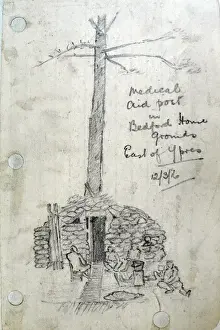 Medical
Aid post
in
Bedford House
Grounds
East of Ypres
12/3/16